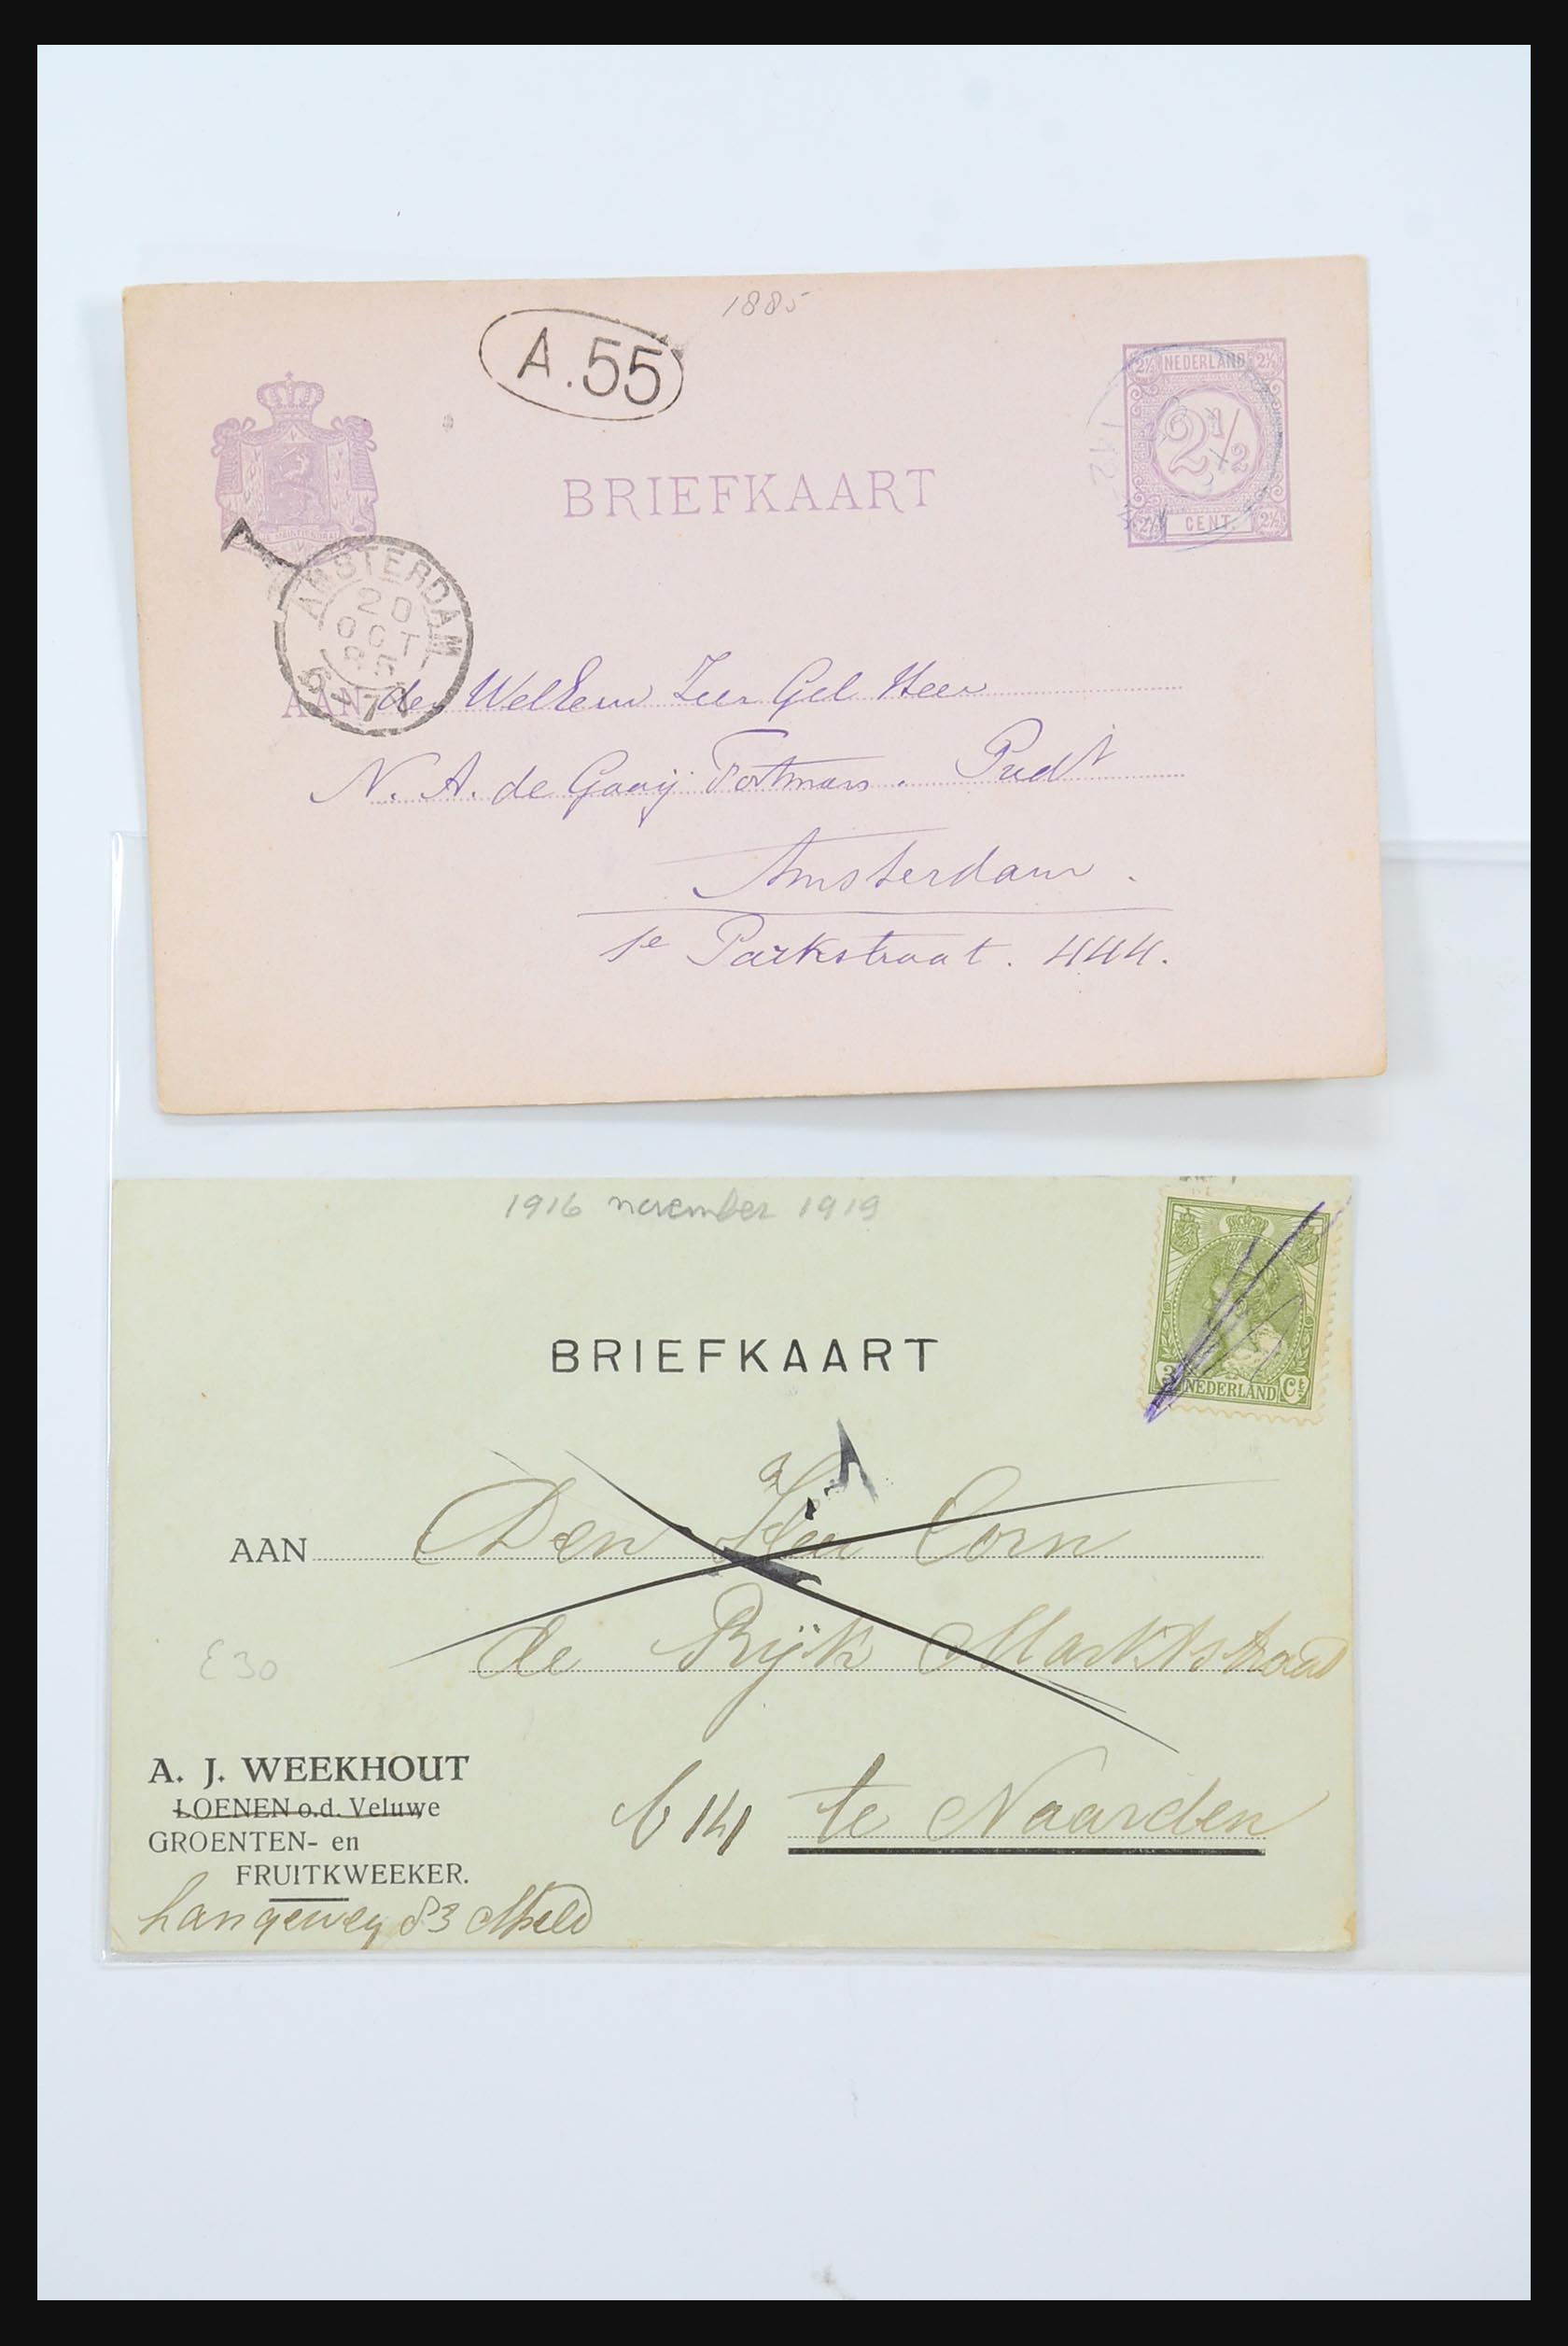 1885
A.55
2½ NEDERLAND 2½
2½
2½ CENT. 2½
BRIEFKAART
AMSTERDAM
20
OCT
85
AAN den WelEerw Zeer Gel Heer
N. A. de Gaaij Fortman. Pred^t
Amsterdam.
1e Parkstraat. 444.
1916 november 1919
3 NEDERLAND Ct
BRIEFKAART
AAN Den Heer Corn
de Rijk Marktstraat
E30
A. J. WEEKHOUT
LOENEN o.d. Veluwe
b 141 te Naarden
GROENTEN- en
FRUITKWEEKER.
Langeweg 83